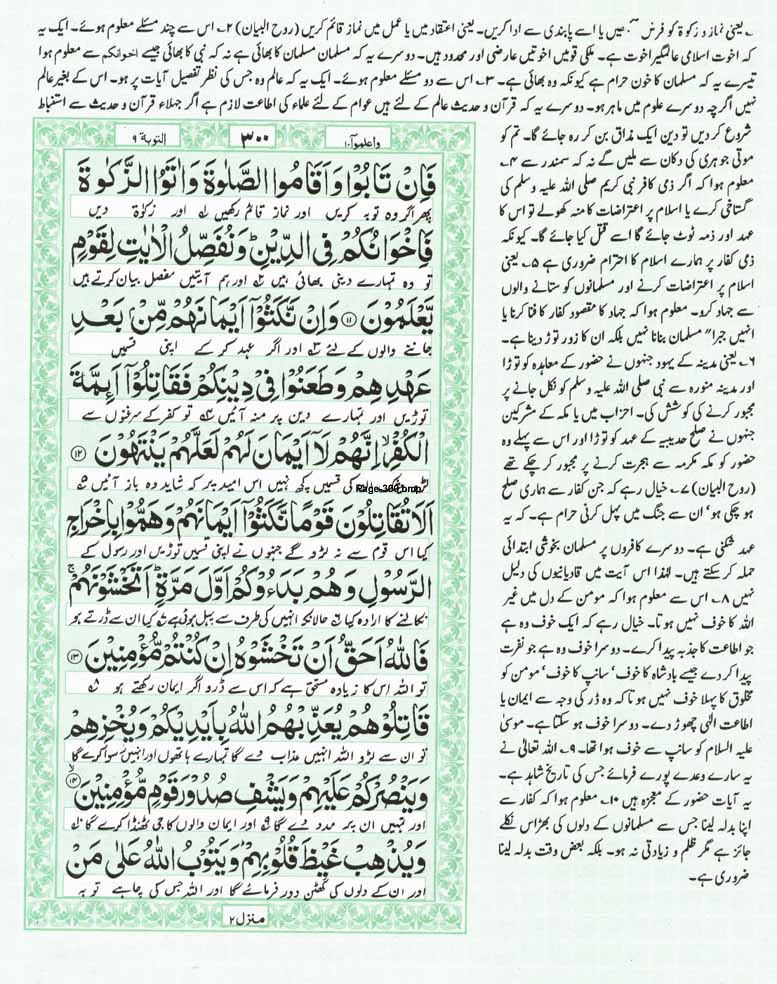 ۱۔ یعنی نماز و زکوٰۃ کو فرض سمجھیں یا اسے پابندی سے ادا کریں۔ یعنی اعتقاد میں یا عمل میں نماز قائم کریں (روح البیان) ۲۔ اس سے چند مسئلے معلوم ہوئے۔ ایک یہ
کہ اخوت اسلامی عالمگیر اخوت ہے۔ ملکی قومیں اخوتیں عارضی اور محدود ہیں۔ دوسرے یہ کہ مسلمان مسلمان کا بھائی ہے نہ کہ نبی کا بھائی جیسے اخوانکم سے معلوم ہوا
تیسرے یہ کہ مسلمان کا خون حرام ہے کیونکہ وہ بھائی ہے۔ ۳۔ اس سے دو مسئلے معلوم ہوئے۔ ایک یہ کہ عالم وہ جس کی نظر تفصیل آیات پر ہو۔ اس کے بغیر عالم
نہیں اگرچہ دوسرے علوم میں ماہر ہو۔ دوسرے یہ کہ قرآن و حدیث عالم کے لئے ہیں عوام کے لئے علماء کی اطاعت لازم ہے اگر جہلاء قرآن و حدیث سے استنباط
شروع کر دیں تو دین ایک مذاق بن کر رہ جائے گا۔ تم کو
موتی جوہری کی دکان سے ملیں گے نہ کہ سمندر سے ۴۔
معلوم ہوا کہ اگر ذمی کافر نبی کریم صلی اللہ علیہ وسلم کی
گستاخی کرے یا اسلام پر اعتراضات کا منہ کھولے تو اس کا
عہد اور ذمہ ٹوٹ جائے گا اسے قتل کیا جائے گا۔ کیونکہ
ذمی کفار پر ہمارے اسلام کا احترام ضروری ہے ۵۔ یعنی
اسلام پر اعتراضات کرنے اور مسلمانوں کو ستانے والوں
سے جہاد کرو۔ معلوم ہوا کہ جہاد کا مقصود کفار کا فنا کرنا یا
انہیں جبرا" مسلمان بنانا نہیں بلکہ ان کا زور توڑ دینا ہے۔
۶۔ یعنی مدینہ کے یہود جنہوں نے حضور کے معاہدہ کو توڑا
اور مدینہ منورہ سے نبی صلی اللہ علیہ وسلم کو نکل جانے پر
مجبور کرنے کی کوشش کی۔ احزاب میں یا مکہ کے مشرکین
جنہوں نے صلح حدیبیہ کے عہد کو توڑا اور اس سے پہلے وہ
حضور کو مکہ مکرمہ سے ہجرت کرنے پر مجبور کر چکے تھے
(روح البیان) ۷۔ خیال رہے کہ جن کفار سے ہماری صلح
ہو چکی ہو، ان سے جنگ میں پہل کرنی حرام ہے۔ کہ یہ
عہد شکنی ہے۔ دوسرے کافروں پر مسلمان بخوشی ابتدائی
حملہ کر سکتے ہیں۔ لہٰذا اس آیت میں قادیانیوں کی دلیل
نہیں ۸۔ اس سے معلوم ہوا کہ مومن کے دل میں غیر
اللہ کا خوف نہیں ہوتا۔ خیال رہے کہ ایک خوف وہ ہے
جو اطاعت کا جذبہ پیدا کرے۔ دوسرا خوف وہ ہے جو نفرت
پیدا کر دے جیسے بادشاہ کا خوف، سانپ کا خوف، مومن کو
مخلوق کا پہلا خوف نہیں ہوتا کہ وہ ڈر کی وجہ سے ایمان یا
اطاعت الٰہی چھوڑ دے۔ دوسرا خوف ہو سکتا ہے۔ موسیٰ
علیہ السلام کو سانپ سے خوف ہوا تھا۔ ۹۔ اللہ تعالیٰ نے
یہ سارے وعدے پورے فرمائے جس کی تاریخ شاہد ہے۔
یہ آیات حضور کے معجزہ ہیں ۱۰۔ معلوم ہوا کہ کفار سے
اپنا بدلہ لینا جس سے مسلمانوں کے دلوں کی بھڑاس نکلے
جائز ہے مگر ظلم و زیادتی نہ ہو۔ بلکہ بعض وقت بدلہ لینا
ضروری ہے۔
واعلموا ۱۰ ۳۰۰ التوبۃ ۹
فَاِنْ تَابُوْا وَاَقَامُوا الصَّلٰوةَ وَاٰتَوُا الزَّكٰوةَ
پھر اگر وہ توبہ کریں اور نماز قائم رکھیں اور زکوٰۃ دیں
فَاِخْوَانُكُمْ فِي الدِّيْنِ ؕ وَنُفَصِّلُ الْاٰيٰتِ لِقَوْمٍ
تو وہ تمہارے دینی بھائی ہیں اور ہم آیتیں مفصل بیان کرتے ہیں
يَّعْلَمُوْنَ ۝۱۱ وَاِنْ نَّكَثُوْۤا اَيْمَانَهُمْ مِّنْۢ بَعْدِ
جاننے والوں کے لئے اور اگر عہد کر کے اپنی قسمیں
عَهْدِهِمْ وَطَعَنُوْا فِيْ دِيْنِكُمْ فَقَاتِلُوْۤا اَئِمَّةَ
توڑیں اور تمہارے دین پر منہ آئیں تو کفر کے سرغنوں سے
الْكُفْرِ ۙ اِنَّهُمْ لَاۤ اَيْمَانَ لَهُمْ لَعَلَّهُمْ يَنْتَهُوْنَ ۝۱۲
کی قسمیں کچھ نہیں اس امید پر کہ شاید وہ باز آئیں
Page-300.bmp
اَلَا تُقَاتِلُوْنَ قَوْمًا نَّكَثُوْۤا اَيْمَانَهُمْ وَهَمُّوْا بِاِخْرَاجِ
کیا اس قوم سے نہ لڑو گے جنہوں نے اپنی قسمیں توڑیں اور رسول کے
الرَّسُوْلِ وَهُمْ بَدَءُوْكُمْ اَوَّلَ مَرَّةٍ ؕ اَتَخْشَوْنَهُمْ ۚ
نکالنے کا ارادہ کیا حالانکہ انہیں کی طرف سے پہل ہوئی ہے کیا ان سے ڈرتے ہو
فَاللّٰهُ اَحَقُّ اَنْ تَخْشَوْهُ اِنْ كُنْتُمْ مُّؤْمِنِيْنَ ۝۱۳
تو اللہ اس کا زیادہ مستحق ہے کہ اس سے ڈرو اگر ایمان رکھتے ہو
قَاتِلُوْهُمْ يُعَذِّبْهُمُ اللّٰهُ بِاَيْدِيْكُمْ وَيُخْزِهِمْ
تو ان سے لڑو اللہ انہیں عذاب دے گا تمہارے ہاتھوں اور انہیں رسوا کرے گا
وَيَنْصُرْكُمْ عَلَيْهِمْ وَيَشْفِ صُدُوْرَ قَوْمٍ مُّؤْمِنِيْنَ ۝۱۴
اور تمہیں ان پر مدد دے گا اور ایمان والوں کا جی ٹھنڈا کرے گا
وَيُذْهِبْ غَيْظَ قُلُوْبِهِمْ ؕ وَيَتُوْبُ اللّٰهُ عَلٰى مَنْ
اور ان کے دلوں کی گھٹن دور فرمائے گا اور اللہ جس کی چاہے توبہ
منزل ۲